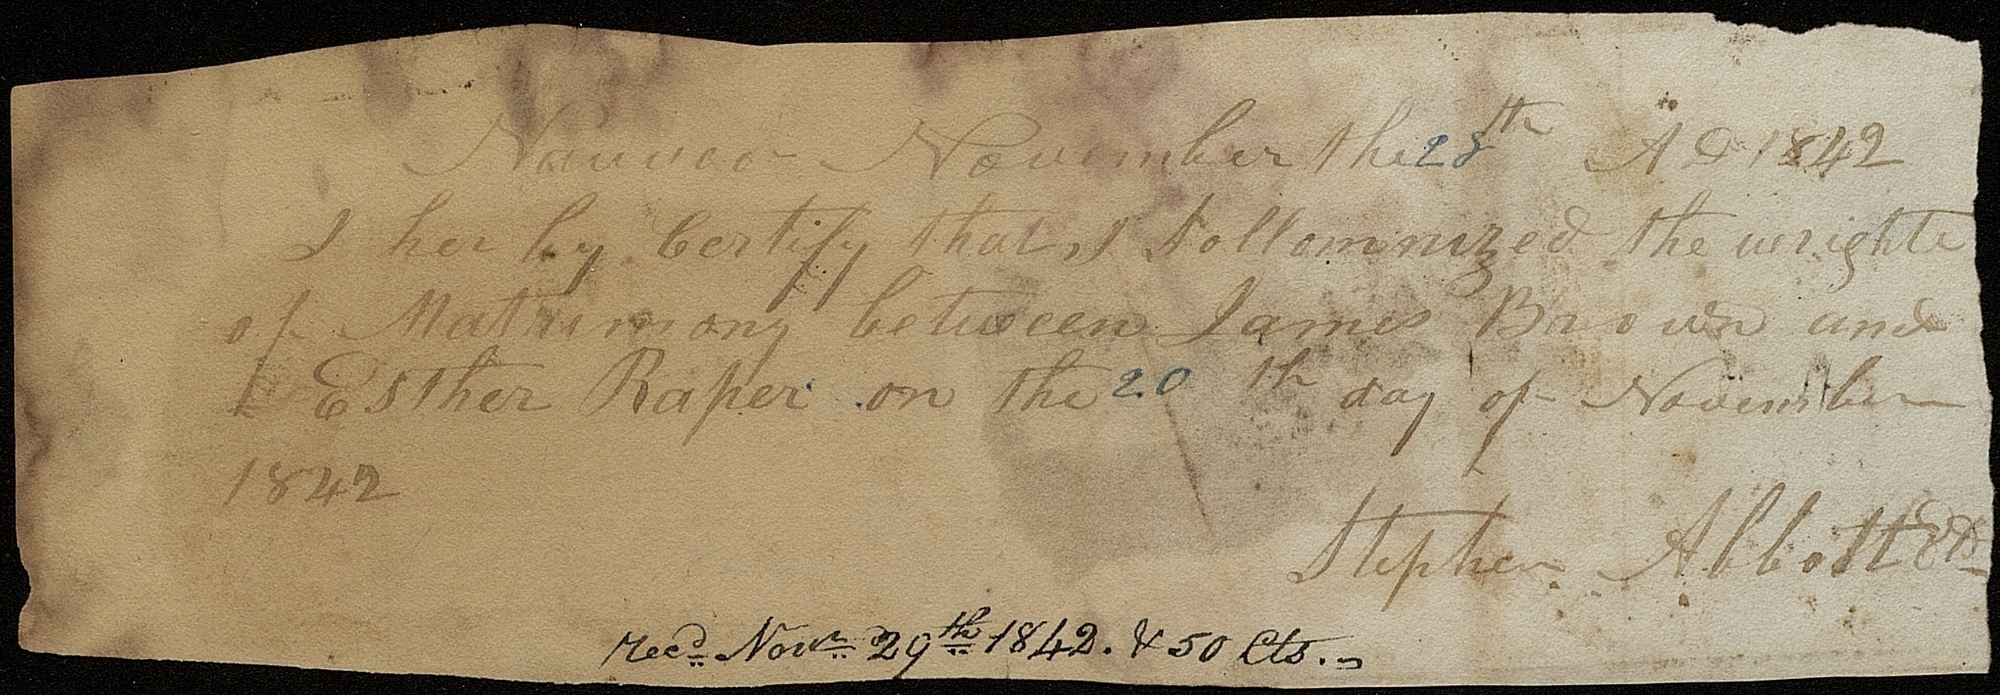 Nauvoo November the 28th A D 1842
I her by Certify that I Sollomnized the wrighte
of Matrimony between James Brown and
Esther Raper on the 20 th day of November
1842
Stephen Abbott
recd. Novr. 29th 1842. & 50 Cts.